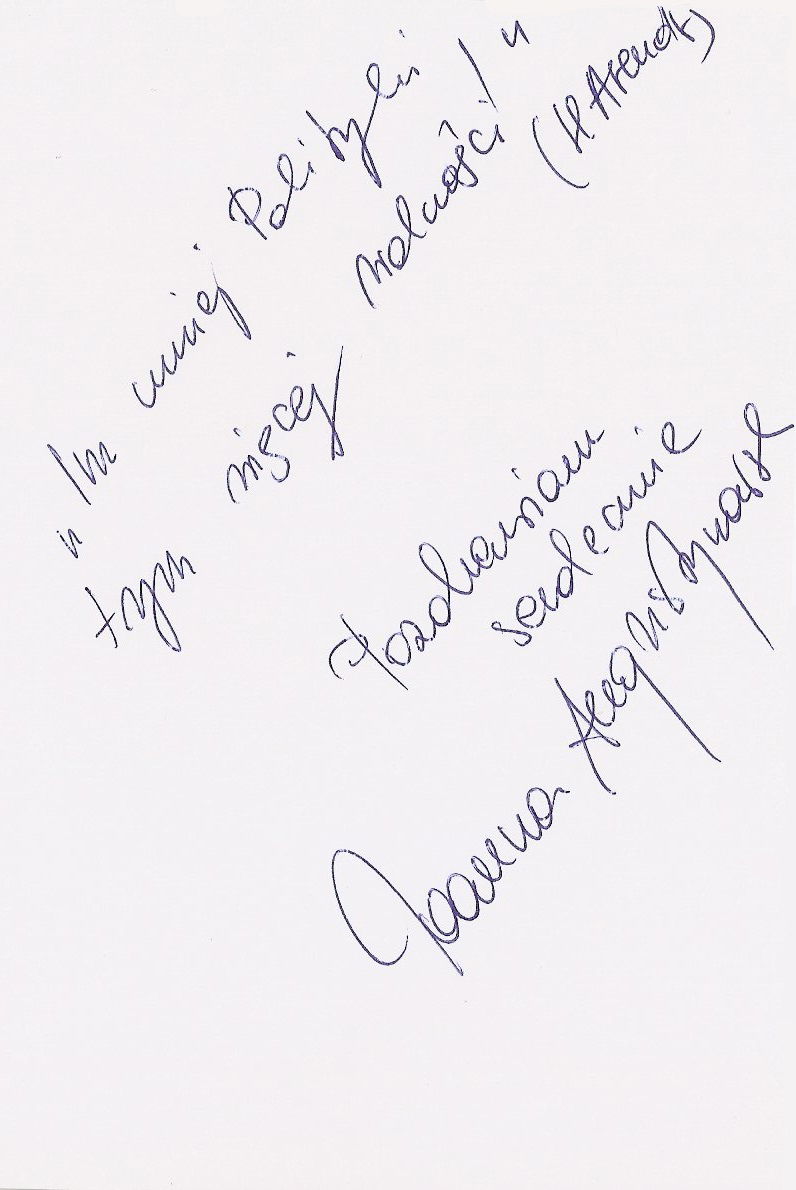 „Im mniej Polityki
tym więcej wolności!"
(H Arendt)
Pozdrawiam
serdecznie
Joanna Augustynowska